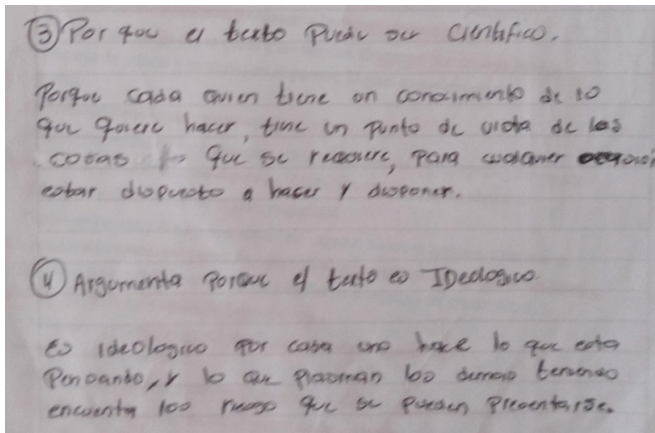 ③ Por que el texto Puede ser Científico.
Porque cada quien tiene un conocimiento de lo
que quiere hacer, tine un Punto de vista de las
cosas que se requiere, para cualquier
estar dispuesto a hacer y disponer.
④ Argumenta Porque el texto es IDeologico
Es ideologico por cada uno hace lo que esta
Pensando, y lo que Plasman los demas teniendo
encuenta los riesgo que se pueden Presentarse.